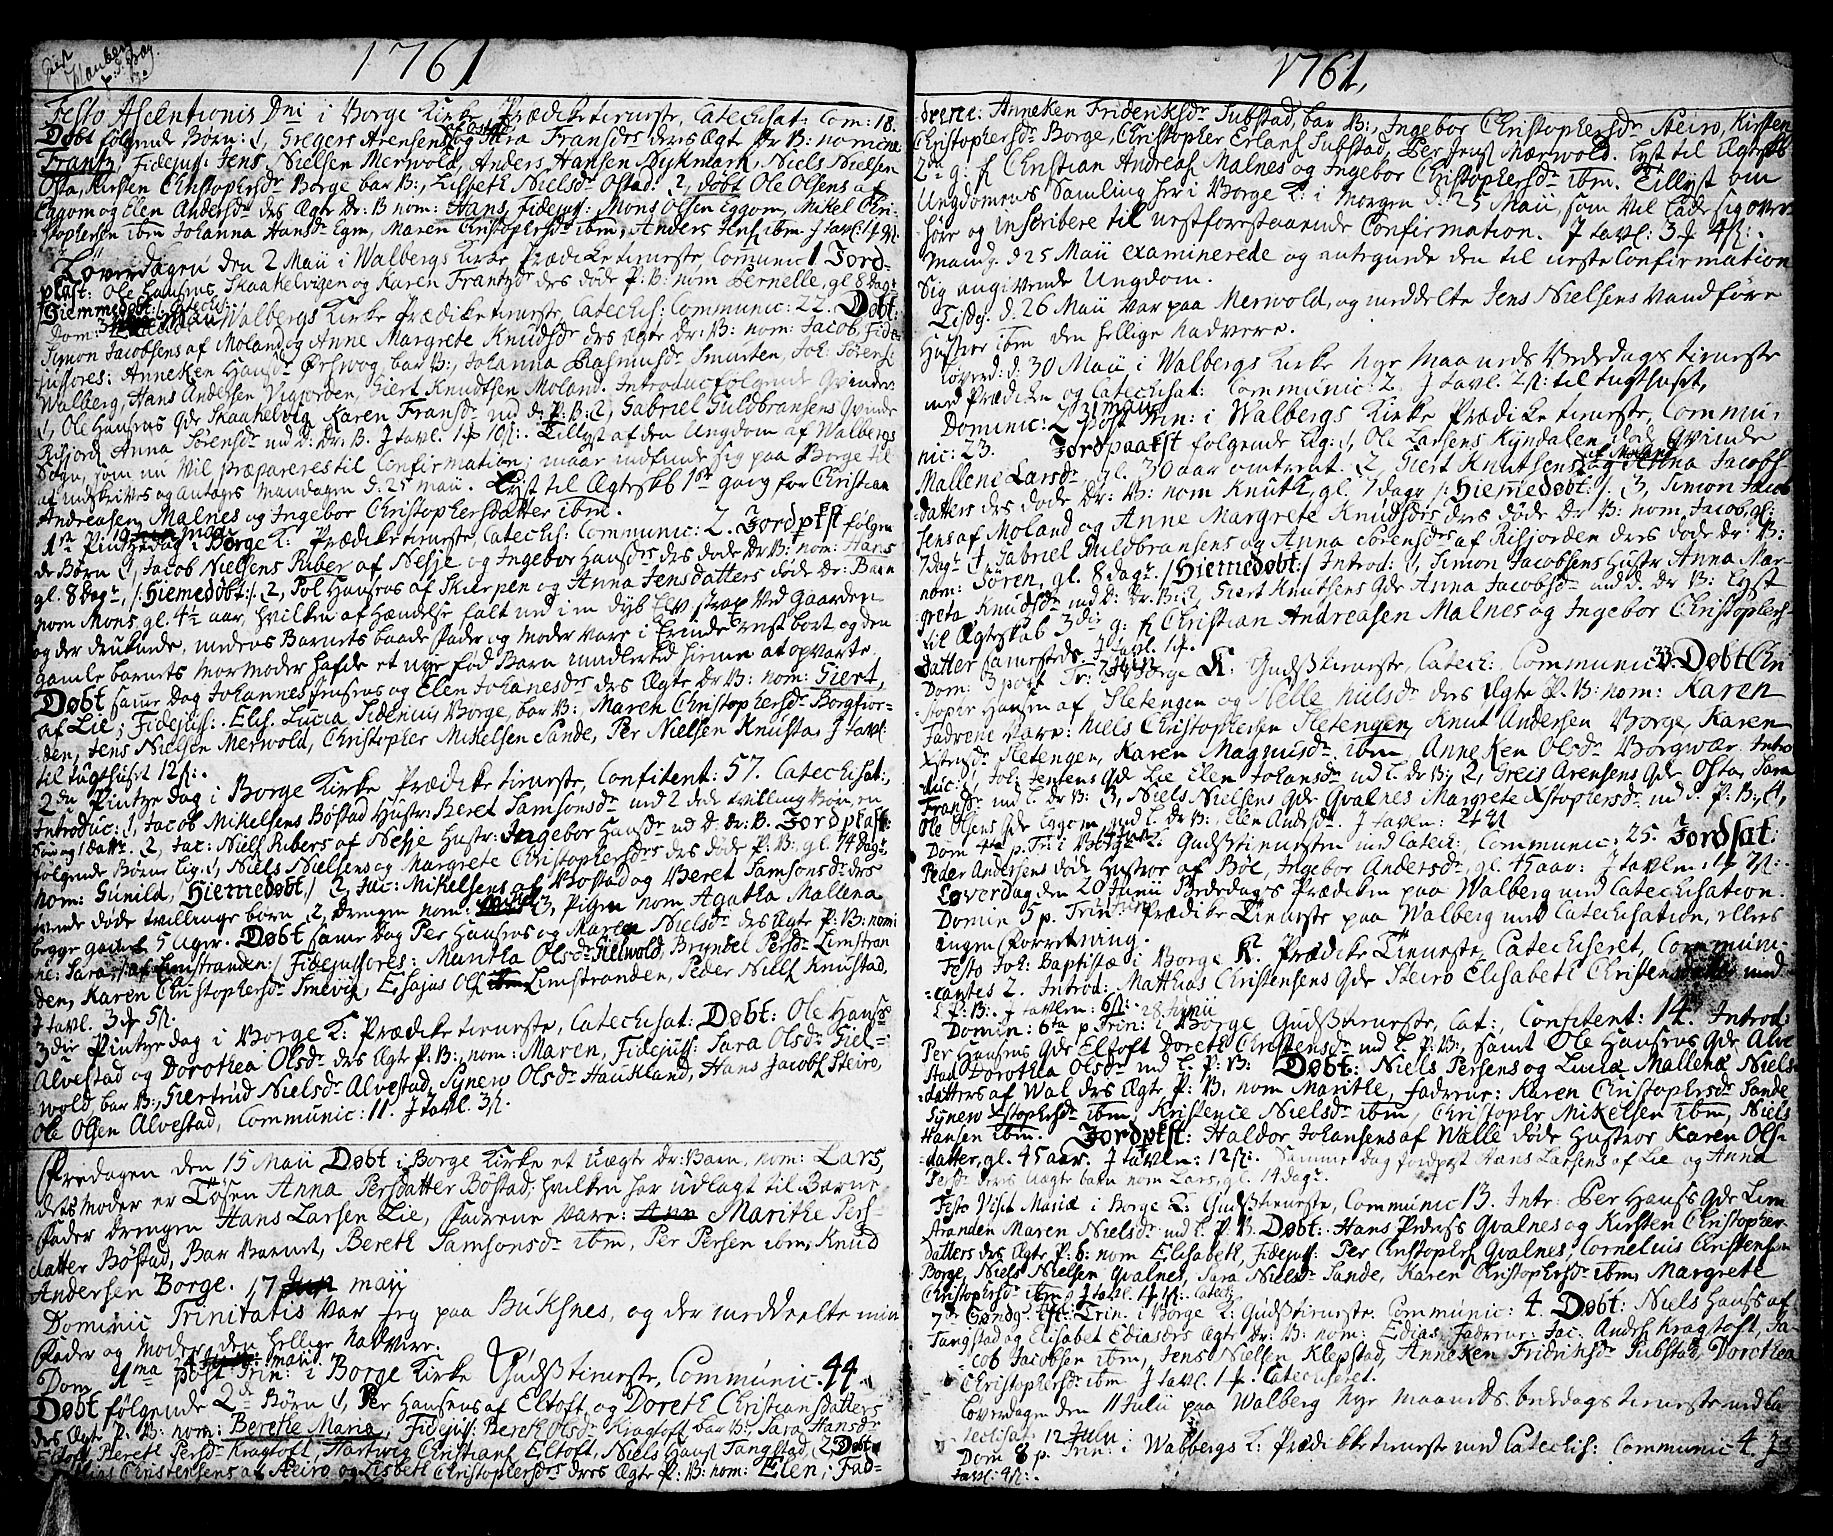 1761
Festo Asentionis Dni i Borge Kirke Prædiketieneste, Catechisat: Com: 18.
Døbt følgende Børn: 1, Gregers Arensens og Sara Fransdr deres Ægte Dr B: nomine
Frantz, Fidejuss: Jens Nielsen Merwold, Anders Hansen Dykmark, Niels Nielsen
Osta, Kirsten Christophersdr Borge bar B:, Lisbeth Nielsdr Ostad. 2, døbt Ole Olsens af
Eggom og Elen Andersdr des Ægte Dr: B nom: Hans, Fidejuss: Mons Olsen Eggom, Mikel Chri-
stophersen ibm Johanna Hansdr Egm, Maren Christophersdr ibm, Anders Jens ibm. J tavl: 1
Løverdagen den 2 Maii i Walbergs Kirke Prædiketieneste, Comunic 1 Jord-
pkast: Ole Hansens Skaakelvigen og Karen Frantzdr des døde P: B: nom Pernelle, gl 8 dagr
Hiemmedøbt:
Dom: i Walbergs Kirke Prædiketieneste, Catechis: Communic: 22. Døbt:
Simon Jacobsens af Moland og Anne Margrete Knudsdr des Ægte Dr: B: nom: Jacob, Fide-
jussores: Anneken Hansdr Ørswog, bar B:, Johanna Rasmusdr Smorten, Joh: Sørens
Walberg, Hans Andersen Vigjorden, Giert Knudtsen Moland. Introduc følgende Qvinder:
1, Ole Hansens Qde Skaakelvig Karen Fransdr md d: P: B: 2, Gabriel Guldbransens Qvinde
Risjord Anna Sørensdr md d: Dr: B. J tavl. 10 ß:. Tillyst af den Ungdom af Walbergs
Sogn, som nu vil præpareres til Confirmation, maar indfinde sig paa Borge til
at indskrives og antages Mandagen d. 25 maii. Lyst til Ægteskb 1ste gang for Christian
Andreasen Malnes og Ingebor Christophersdatter ibm.
1ste Pintzedag i Borge K: Prædiketieneste, Catechis: Communic: 2. Jordpkst følgen
de Børn 1, Jacob Nielsens Riber af Nesje og Ingebor Hansdrs des døde Dr B: nom: Hans
gl. 8 Dagr, /:Hiemedøbt:/. 2, Pol Hansens af Skierpen og Anna Jensdatters døde Dr: Barn
nom Mons, gl. 4½ aar, hvilken af Hændelse falt ned i en dyb Elv strax ved Gaarden
og der druknede, medens Barnets baade Fader og Moder vare i Erinde reist bort og den
gamle barnets Mormoder hafde et nye fød Barn imidlertid hieme at opvarte.
Døbt samme Dag Johannes Jensens og Elen Johanesdrs des Ægte Dr B: nom: Giert,
af Lie, Fidejuss: Elis. Lucia Sidenius Borge, bar B:, Maren Christophersdr Borgfior-
den, Jens Nielsen Merwold, Christopher Mikelsen Sande, Per Nielsen Knusta, J tavl:
til tugthuset 12 ß:.
2den Pintzedag i Borge Kirke Prædiketieneste, Confitent: 57. Catechisat:,
Introduc: 1, Jacob Mikelsens Bøstad Hustr: Beret Samsonsdr med 2 døde tvilling Børn, en
Søn og 1 Datter. 2, Jac: Niels Ribers af Nesje Hustr: Ingebor Hansdr md d: Dr: B. Jordpkast:
følgende Børns Lig: 1, Niels Nielsens og Margrete Christophersdrs des døde P: B: gl. 14 Dagr
nom: Gunild, /Hiemedøbt:/ 2, Jac: Mikelsens af Bostad og Beret Samsonsdr des
tvende døde tvillinge børn 2, drengen nom: 3, Pigen nom Agatha Mallena
begge 5 Uger. Døbt samme Dag Per Hansens og Maren Nielsdr des Ægte P: B: nomi
ne: Sara /: af Limstranden:/ Fidejussores: Maritha Olsdr Helwold, Bryndel Persdr Limstran
den, Karen Christophersdr Smevig, Esajas Ols Limstranden, Peder Niels Knustad,
J tavl. 3 5 ß.
3die Pintzedag i Borge K: Prædiketieneste, Catechisat: Døbt: Ole Hans:
Alvestad og Dorothea Olsdr des Ægte P: B:, nom: Maren, Fidejuss: Sara Olsdr Giel-
wold bar B:, Giertrud Nielsdr Alvestad, Synew Olsdr Haukland, Hans Jacobs Steiro,
Ole Olsen Alvestad, Communic: 11. J tavl. 3 ß.
Fredagen den 15 Maii Døbt i Borge Kirke et uægte Dr: Barn, nom: Lars,
dets Moder er Tøsen Anna Persdatter Bøstad, hvilken har udlagt til Barne
Fader drengen Hans Larsen Lie, Fadrene vare: Marithe Pers-
datter Bøstad, Bar Barnet, Bereth Samsonsdr ibm, Per Persen ibm, Knud
Andersen Borge. 17 maij
Dominic Trinitatis var jeg paa Buksnes, og der meddeelte min
Fader og Moder den hellige Nadvere.
Dom 1ma post Trin: i Borge Kirke Gudstieneste, Communic: 44.
Døbt følgende 2de Børn 1, Per Hansens af Eltoft og Doreth Christiansdatters
des Ægte P: B: nom: Berethe Maria, Fidejuss: Bereth Olsdr Kragtoft bar B:, Sara Hansdr
Eltoft, Bereth Persdr Kragtoft, Hartwig Christians Eltoft, Niels Hans Tangstad, 2, Døbt
Christensens af Steiro og Lisbeth Christophersdr deres Ægte P: B: nom: Elen, Fad-
1761,
drene: Anneken Frideriksdr Substad, bar B:, Ingebor Christophersdr Steiro, Kirsten
Christophersdr Borge, Christopher Erlans Substad, Per Jensl Mærwold. Lyst til Ægtesk
2den g: f: Christian Andreas Malnes og Ingebor Christophersdr ibm. Tillyst om
Ungdomens Samling her i Borge K: i Morgen d. 25 Maii, som vil lade sig over-
høre og inscribere til nestforestaaende Confirmation. J tavl: 3 4 ß:.
Mandg. d 25 Maii examinerede og antegnede den til neste Confirmation
Sig angivende Ungdom.
Tisdg. d. 26 Maii var paa Merwold, og meddelte Jens Nielsens Vandføre
Hustroe ibm den hellige Nadvere.
Løverd: d: 30 Maii i Walbergs Kirke Nye Maaneds Bededags tieneste
med Prædiken og Catechisat: Communic: 2. J tavl. 2 ß: til tugthuset,
Dominic: 2 post Trin: i Walbergs Kirke Prædiketieneste, Commu-
nic: 23. Jordpaakst følgende Lig: 1, Ole Larsens Kyndalen døde Qvinde
Mallene Larsdr gl. 30 aar omtrent. 2, Giert Knutsens af Moland og Anna Jacobs
datters des døde Dr: B: nom Knuth, gl. 7 dagr /:Hiemedøbt:/. 3, Simon Jacob
sens af Moland og Anne Margrete Knudsdrs des døde Dr B: nom, Jacob, gl:
7 Dagr 1, Gabriel Guldbransens og Anna Sørensdrs af Risjorden ders døde Dr: B:
nom: Søren, gl. 8 dagr: /Hiemedøbt:/ Introd: 1, Simon Jacobsens Hustr: Anna Mar-
greta Knudsdr md d: Dr: B: 2, Giert Knutsens Qde Anna Jacobsdr md d. Dr B: Lyst
til Ægteskab 3die g: f: Christian Andreasen Malnes og Ingebor Christophers-
datter
Dom: 3 post Tr: i Borge K: Gudstieneste, Catech:, Communic 33. Døbt Chri-
stopher Hansen af Sletengen og Pelle Nielsdr ders Ægte P: B: nom: Karen
Fadrene vare: Niels Christophersen Sletengen, Knut Andersen Borge, Karen
Sletengen, Karen Magnusdr ibm, Anneken Olsdr Borgwær. Intro
duc: 1, Joh: Jensens Qde Lie Elen Johansdr md l. Dr B:, 2, Greis Arensens Qde Osta, Sara
Fransdr md l. Dr B: 3, Niels Nielsens Qde Qvalnes Margrete Xstophersdr md d. P: B:, 4,
Ole Olsens Qde Eggom md l. Dr B: Elen Andersdr. J tavlen:
Dom 4ta p. Tri i Borge K: Gudstienesten med Catech:, Communic: 25. Jordsat:
Peder Andersens døde Hustroe af Bøe, Ingebor Andersdr, gl. 45 aar: J tavlen
Løverdag den 20 Junii Bededags Prædiken paa Walberg med Catechisation.
Domin 5 p. Trin: Prædike Tieneste paa Walberg med Catechisation, ellers
ingen Forretning.
Festo Joh: Baptistæ i Borge K: Prædike Tieneste, Catechiseret, Communi-
cantes 2. Introd: Matthias Christensens Qde Steiro Elisabeth med
l. P: B:. J tavlen: 6 ß: 28 Junii
Domin: 6ta p Trin: i Borge Gudstieneste, Cat:, Confitent: 14. Introd:
Per Hansens Qde Eltoft Doreth Christensdr md l. P: B:, samt Ole Hansens Qde Alve
stad Dorothea Olsdr md l. P: B: Døbt: Niels Persens og Lucia Mallena Niels-
datters af Wal des Ægte P: B, nom Marithe, Fadrene: Karen Christophersdr Sande,
Synew Xstophersdr ibm, Kristence Nielsdr ibm, Christopher Mikelsen ibm, Niels
Hansen ibm. Jordpkst: Haldor Johansens af Walle døde Hustroe Karen Ols-
datter, gl. 45 aar. J tavlen: 12 ß:. Samme dag jordpst Hans Larsens af Lie og Anna
Persdr deres Uægte barn nom Lars, gl. 14 dagr.
Festo Visit Mariæ i Borge K: Gudstieneste, Communic 13. Intr: Per Hans Qde Lim
stranden Maren Nielsdr md l. P. B. Døbt: Hans Peders Qvalnes og Kirsten Christopher
datters des Ægte P. b: nom Elisabeth, Fidejuss: Per Christophers Qvalnes, Cornelius Christensen
Borge, Niels Nielsen Qvalnes, Sara Nielsdr Sande, Karen Christophersdr ibm, Margrete
Christophersdr ibm
7de Søndg Eft: Trin: i Borge K: Gudstieneste. Communic: 4. Døbt: Niels Hans af
Tangstad og Elisabet Ediasdrs Ægte Dr: B: nom: Edias, Fadrene: Jac: Anders Kragtoft, Ja-
cob Jacobsen ibm, Jens Nielsen Klepstad, Anneken Fridriksdr Substad, Dorothea
Christophersdr ibm J tavl. 1 Catechiseret.
Løverdagen den 11 Julii paa Walberg Nye Maaneds bededags tieneste med Ca-
techisat: 12 Julii
Dom 8 p. Trin: i Walbergs K: Prædikketieneste med Catechis: Communic 4. J
tavl: 9 ß:.